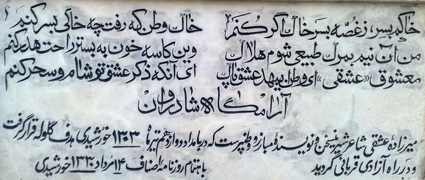 خاکم بسر، ز غصه بسر خاک اگر کنم خاک وطن که رفت چه خاکی بسر کنم
من آن نیم بمرگ طبیعی شوم هلاک وین کاسه خون به بستر راحت هدر کنم
معشوق «عشقی» ای وطن ای عشق پاک ای آنکه ذکر عشق تو شام و سحر کنم
آرامگاه شادروان
میرزاده عشقی شاعر شیرین سخن و نویسنده مبارز و وطن پرست که در بامداد دوازدهم تیرماه ۱۳۰۳ خورشیدی هدف گلوله قرار گرفت
و در راه آزادی قربانی گردید باهتمام روزنامه اصناف ۱۴ مرداد ۱۳۲۰ خورشیدی